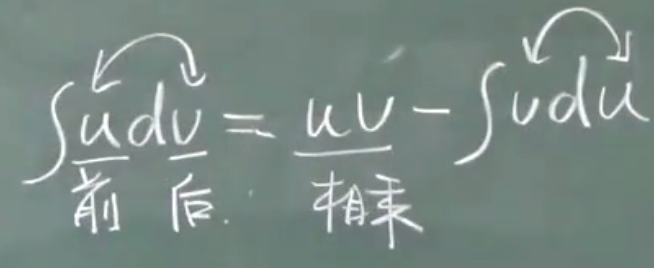 ∫udv = uv - ∫vdu
前 后. 相乘